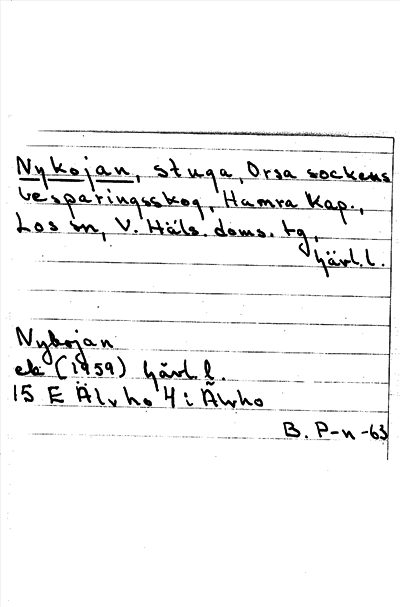 Nykojan, stuga, Orsa sockens
besparingsskog, Hamra Kap.,
Los sn, V. Häls. doms. tg,
Gävl. l.
Nykojan
ek (1959) Gävl. l.
15 E Älvho 4 i Älvho
B. P-n -63